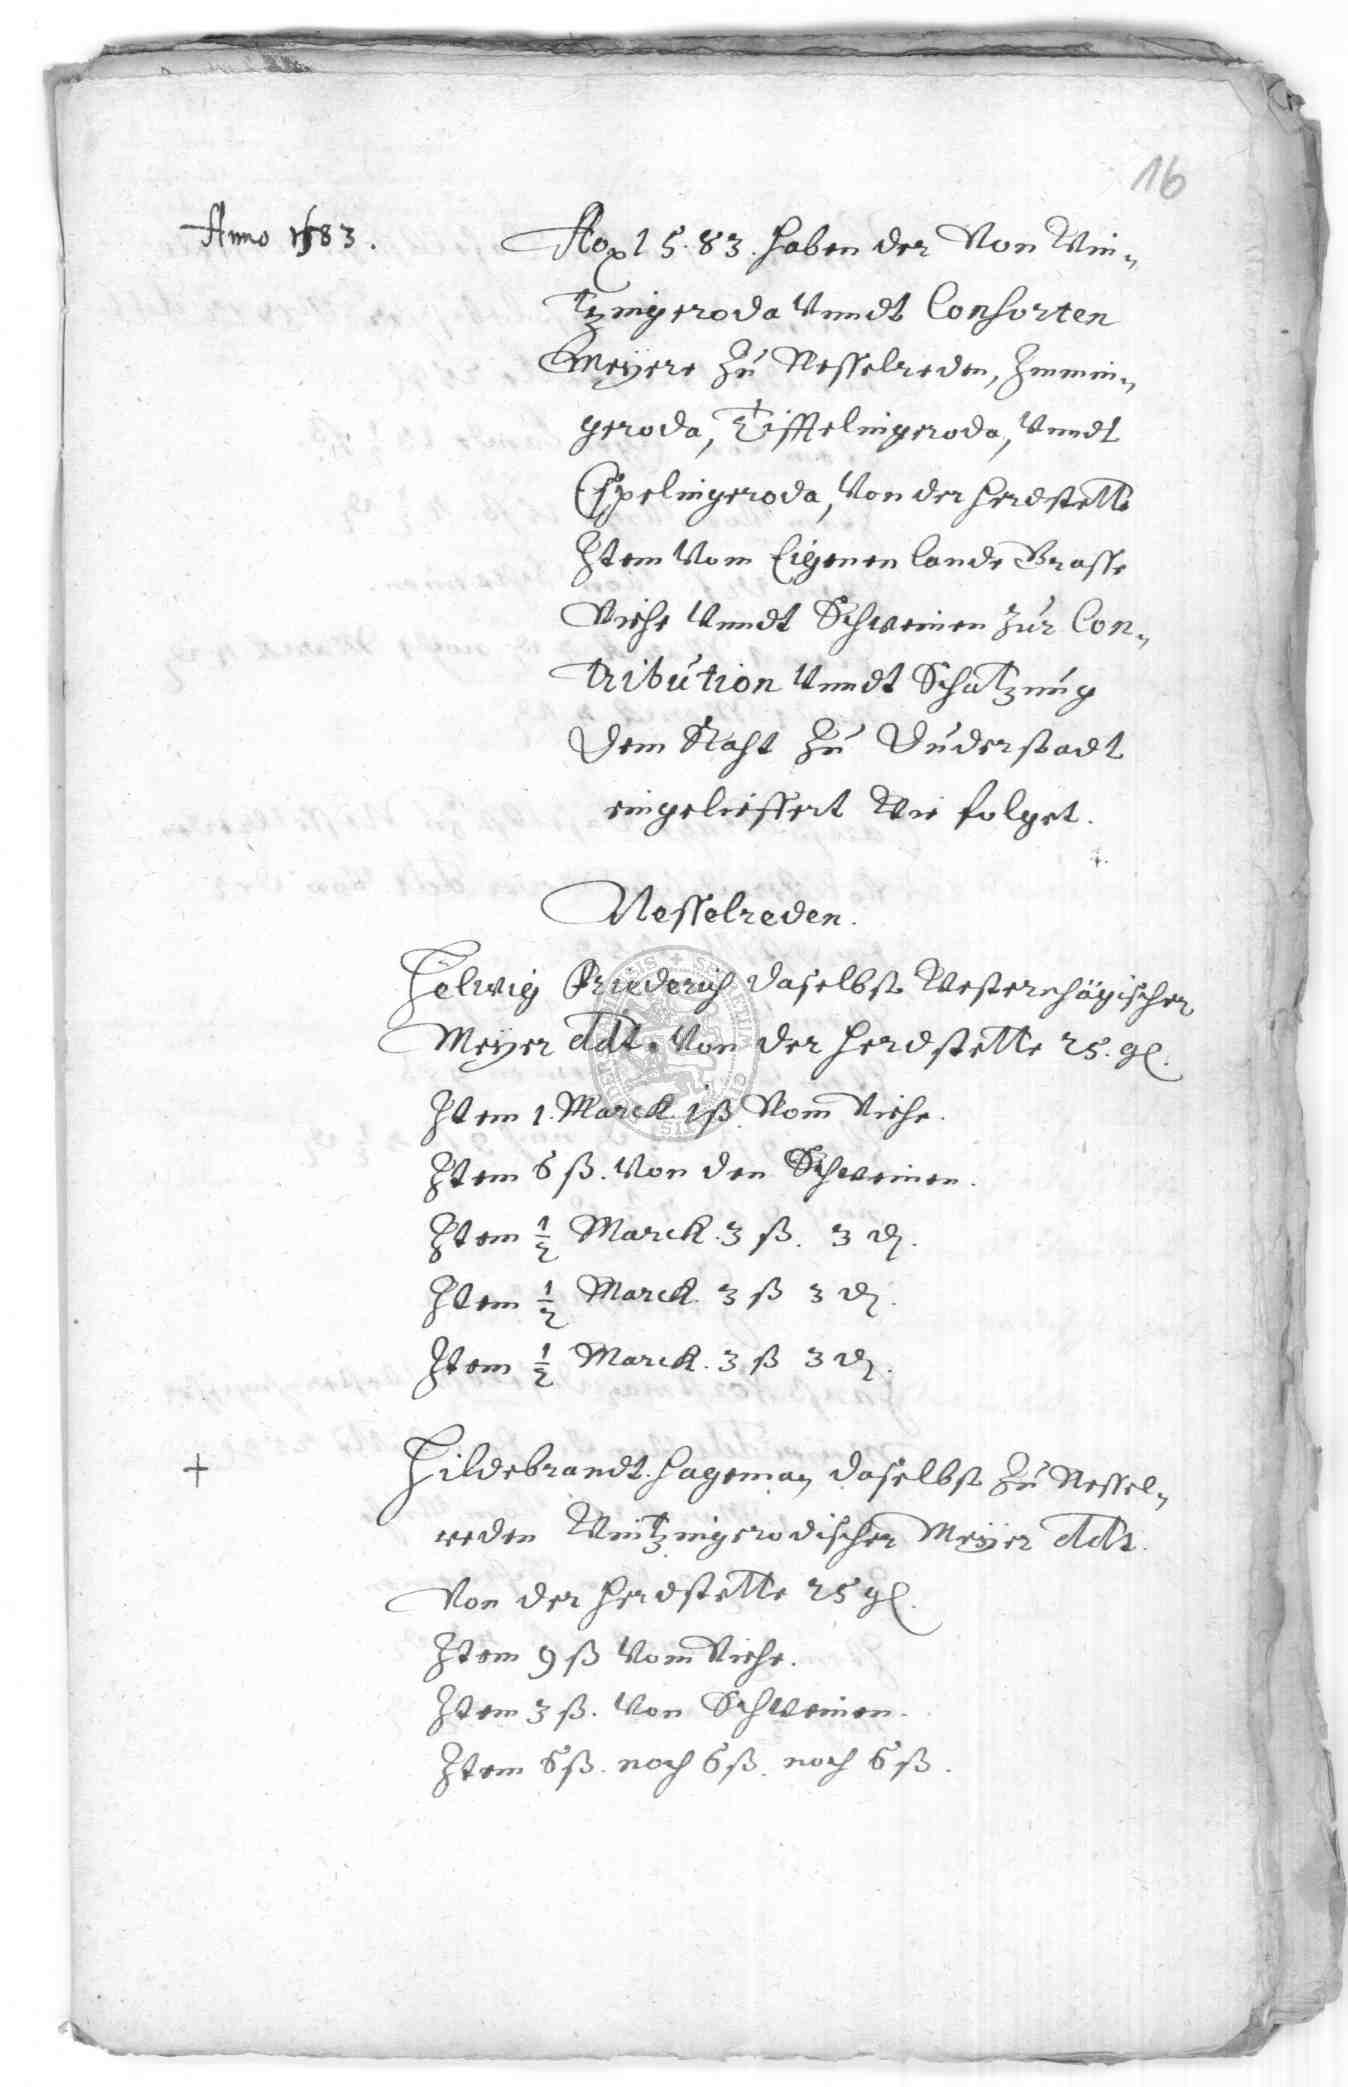 16
Anno 1583.
Ao 1583. haben der Von Win„
tzingeroda Vnndt Consorten
Meÿere Zu Nesselreden, Immin„
geroda, Tifftelingeroda, Vnndt
Espelingeroda, Von der herdstette
Item Vom Eigenen lande Brasse
Viehe Vnndt Schweinen zur Con„
tribution Vnndt Schatzung
Dem Raht Zu Duderstadt
eingelieffert Wie folget.
Nesselreden.
Helwig Friederich daselbst Westernhägischer
Meÿer ddt. Von der herdstette 25. gl.
Item 1. Marck 1 ß Vom Viehe.
Item 6 ß. Von den Schweinen.
Item ½ Marck. 3 ß. 3 ₰.
Item ½ Marck. 3 ß 3 ₰.
Item ½ Marck. 3 ß 3 ₰.
+ Hildebrandt hageman daselbst Zu Nessel„
reden Wintzingerodischer Meÿer ddt.
Von der herdstette 25 gl.
Item 9 ß Vom Viehe.
Item 3 ß. Von Schweinen.
Item 6 ß. noch 6 ß. noch 6 ß.